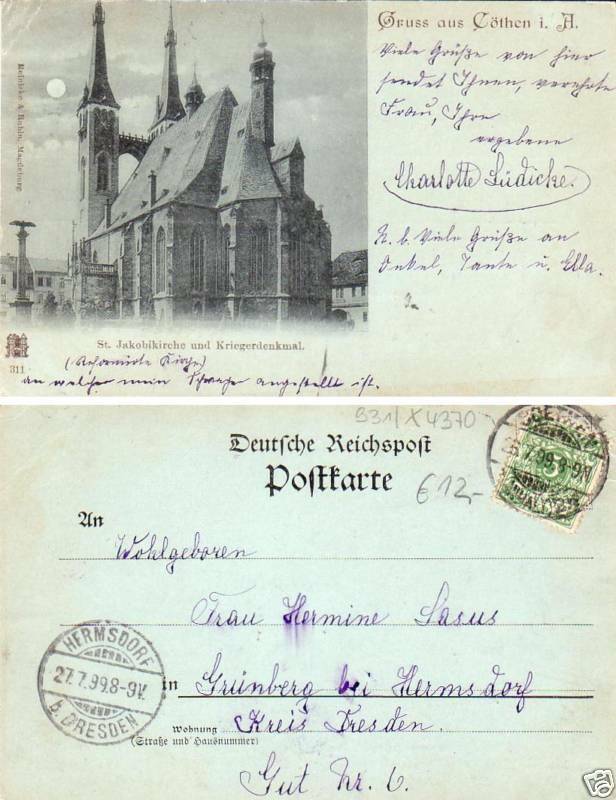 Gruss aus Cöthen i. A.
Viele Grüße von hier
sendet Ihnen, verehrte
Frau, Ihre
ergebene
Charlotte Lüdicke.
N. b. Viele Grüße an
Onkel, Tante u. Ella.
Reinicke & Rubin, Magdeburg
St. Jakobikirche und Kriegerdenkmal.
311
(Reformirte Kirche)
an welcher mein Schwager angestellt ist.
931/X4370
Deutsche Reichspost
Postkarte
€12,-
7.99.8-9V.
An
Wohlgeboren
Frau Hermine Sasus
in Grünberg bei Hermsdorf
HERMSDORF
27.7.99.8-9V.
b. DRESDEN
Wohnung
(Straße und Hausnummer)
Kreis Dresden.
Gut Nr. 6.